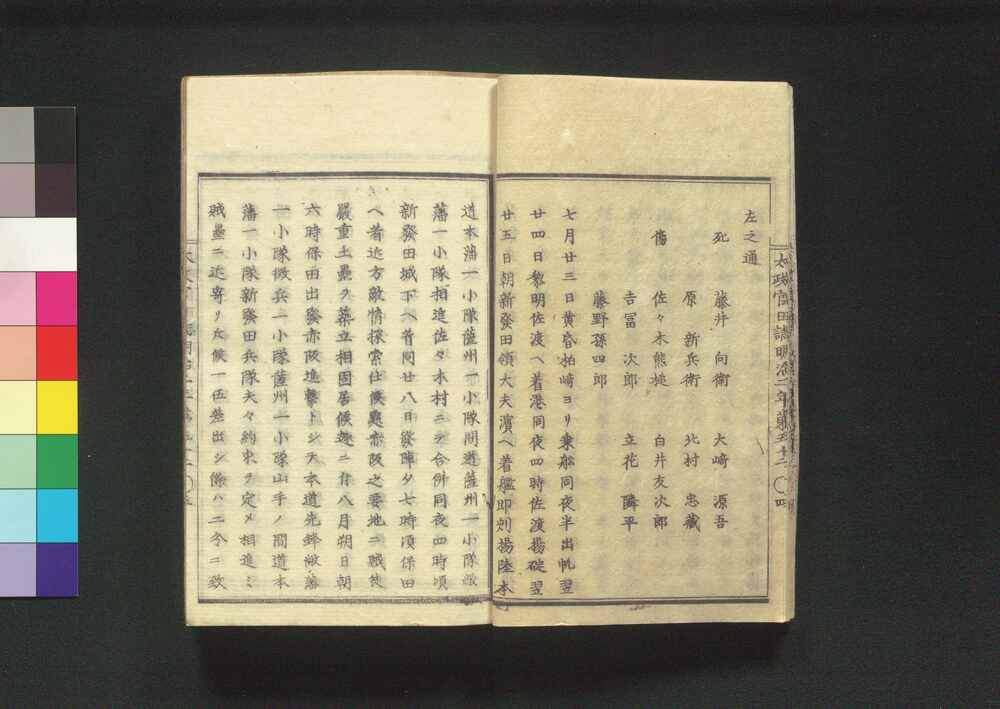 太政官日誌明治二年第五十二 〇四
左之通
死 藤井 向衛 大崎 源吾
原 新兵衛 北村 忠藏
傷 佐々木熊槌 白井友次郎
吉冨 次郎 立花 隣平
藤野孫四郎
七月廿三日黄昏拍崎ヨリ乗舩同夜半出帆翌
廿四日黎明佐渡ヘ着港同夜四時佐渡揚碇翌
廿五日朝新發田領大夫濱ヘ着艦即刻揚陸本
道本藩一小隊薩州一小隊間道薩州一小隊敝
藩一小隊相進佐々木村ニテ合併同夜四時頃
新發田城下ヘ着同廿八日發陣夕七時頃保田
ヘ着近方敵情探索仕候處赤阪之要地ニ賊徒
嚴重土壘ヲ築立相固居候趣ニ付八月朔日朝
六時保田出發赤阪進撃トシテ本道先鋒敝藩
一小隊徴兵一小隊薩州一小隊山手ノ間道本
藩一小隊新發田兵隊夫々約束ヲ定メ相進ミ
賊壘ニ近寄リ斥候一伍差出シ餘ハ二分ニ致